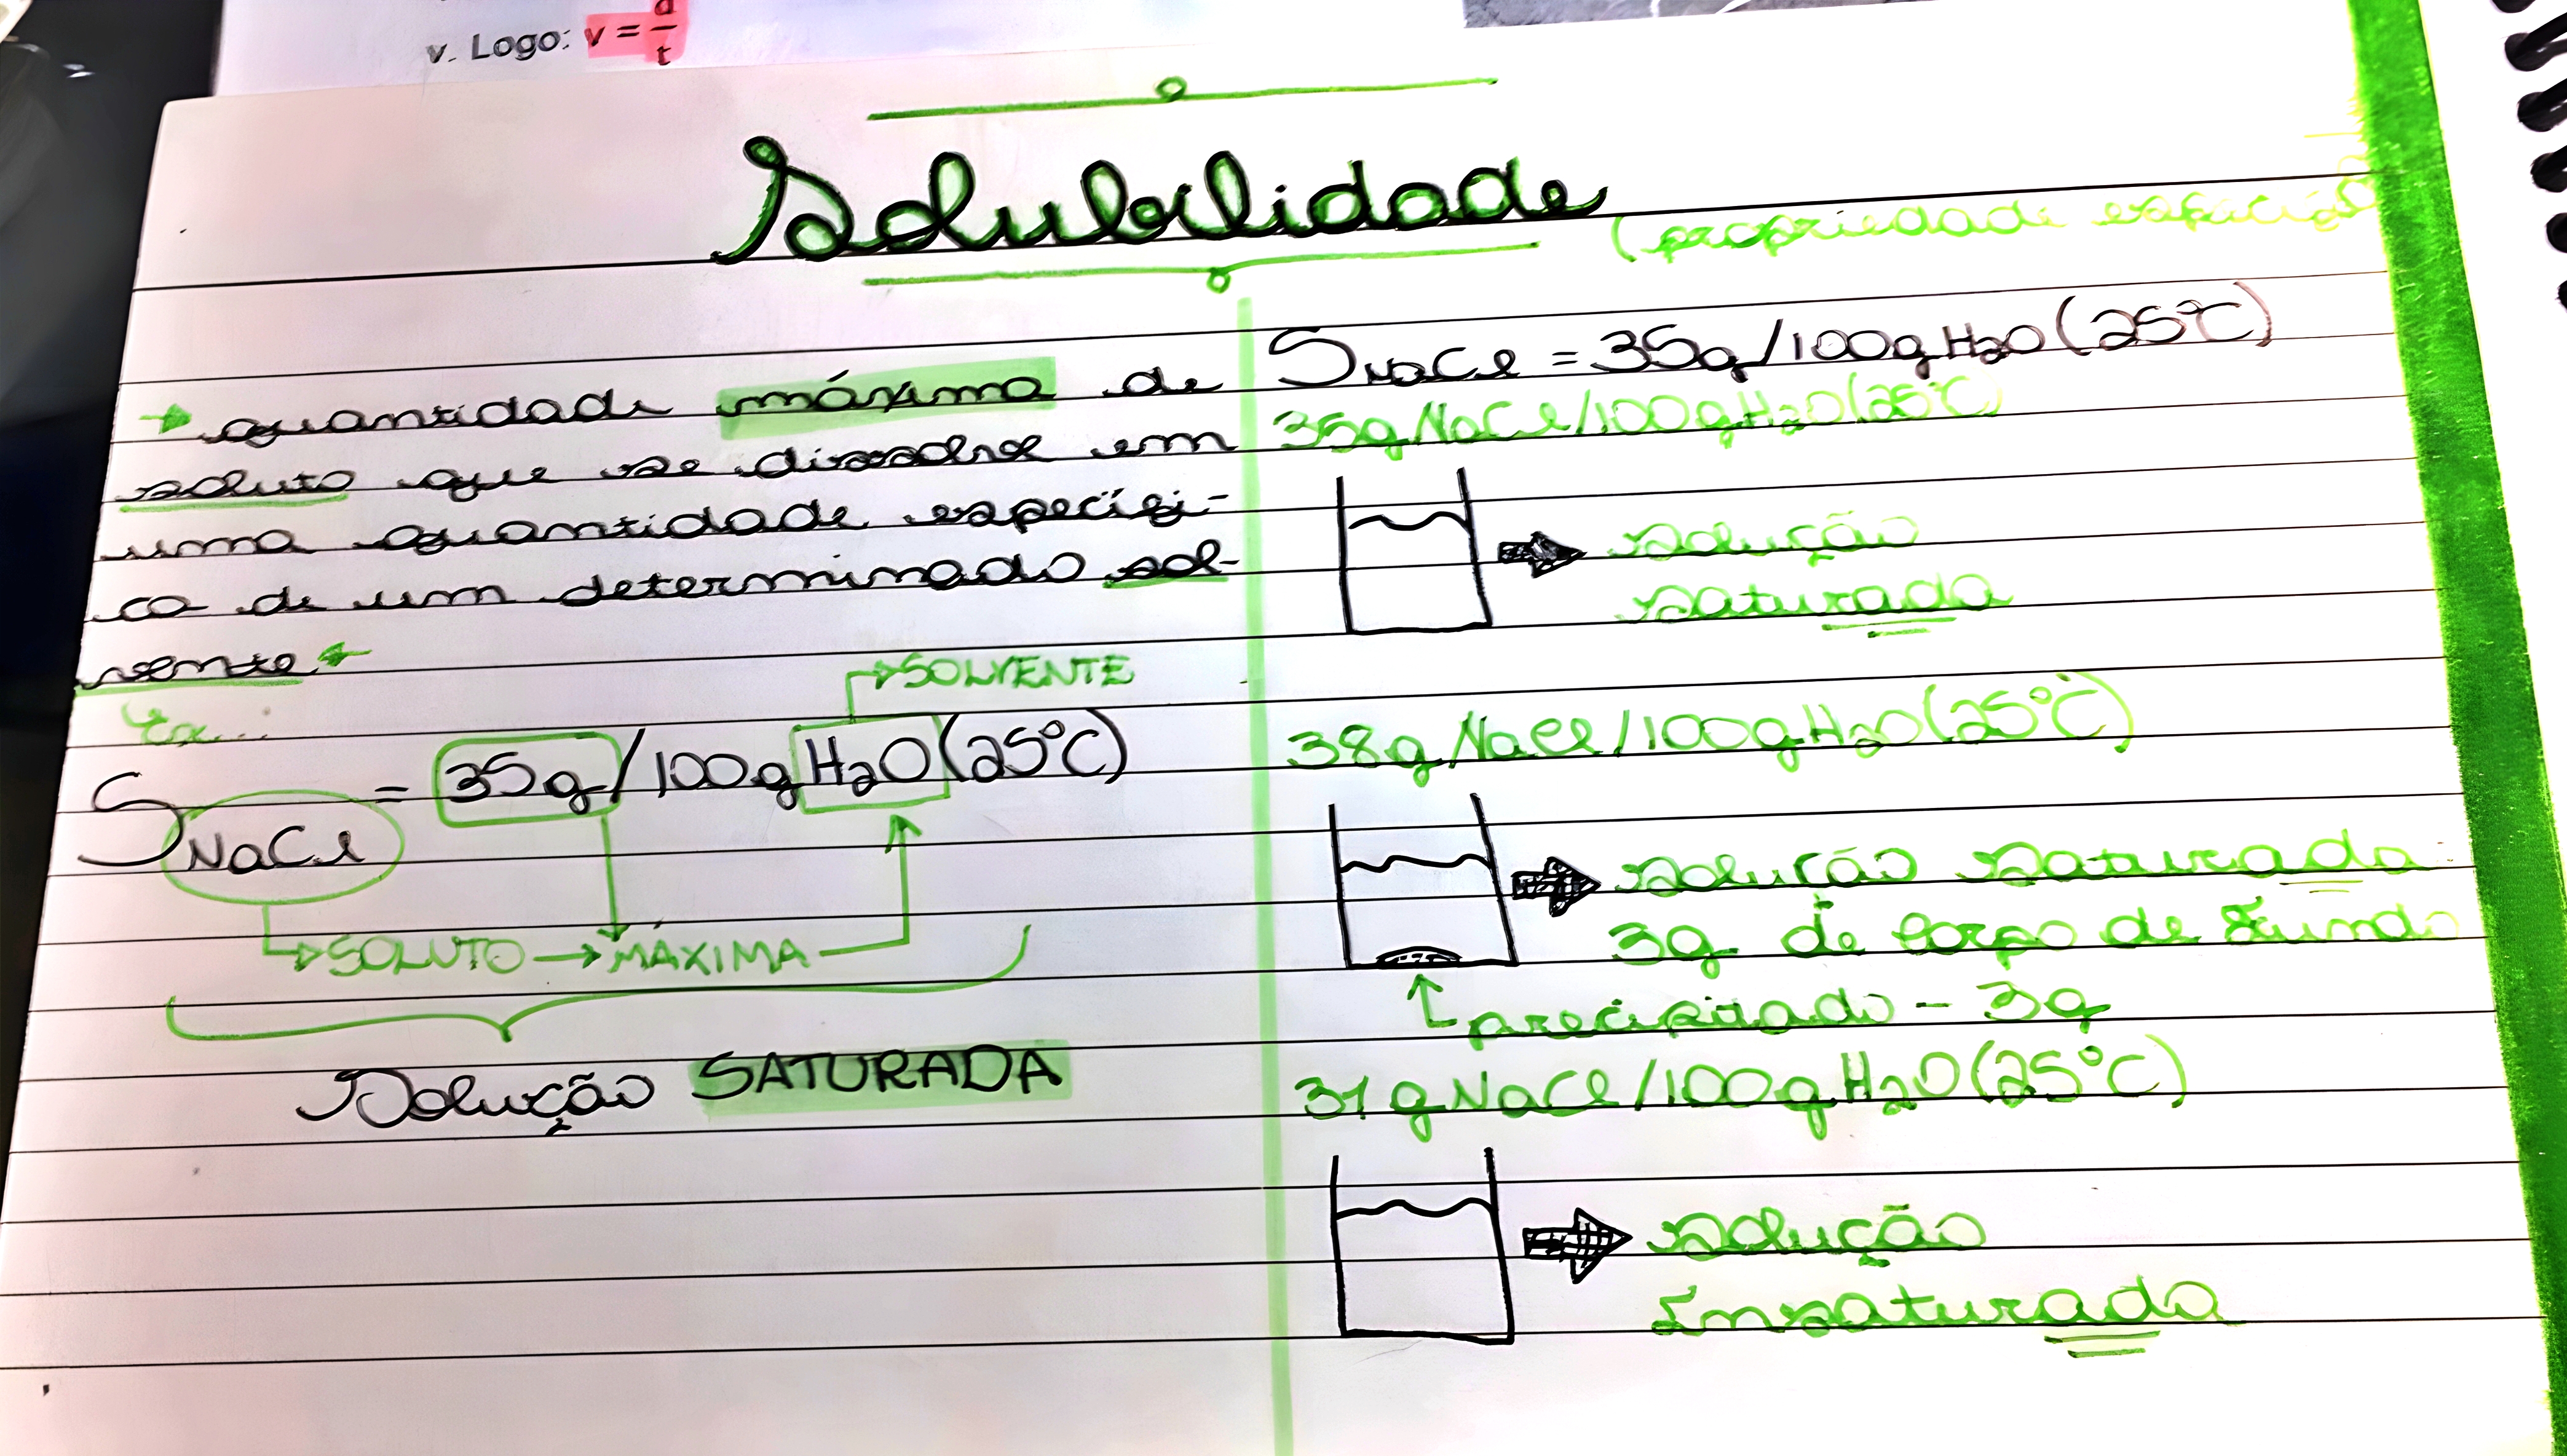 v. Logo: v = d/t
Solubilidade
(propriedade específica
→ quantidade máxima de
soluto que se dissolve em
uma quantidade específi-
ca de um determinado sol-
vente ←
Ex...
→ SOLVENTE
S NaCl = 35g/100g H2O (25°C)
→ SOLUTO → MÁXIMA
Solução SATURADA
S NaCl = 35g/100g H2O (25°C)
35g NaCl/100g H2O (25°C)
solução
saturada
38g NaCl/100g H2O (25°C)
solução saturada
3g de corpo de fundo
precipitado - 3g
31g NaCl/100g H2O (25°C)
solução
Insaturada